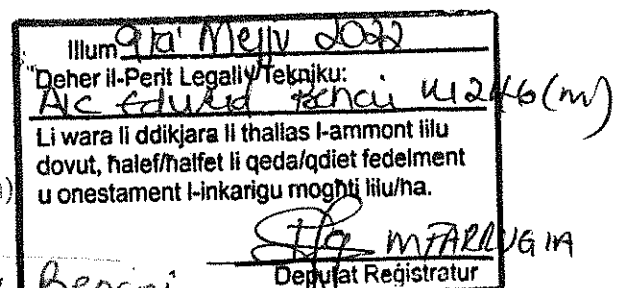 Illum 9 ta' Mejju 2022
Deher il-Perit Legali/Tekniku:
A/C Edward
Li wara li ddikjara li tħallas l-ammont lilu
dovut, ħalef/ħalfet li qeda/qdiet fedelment
u onestament l-inkarigu mogħti lilu/ha.
M FARRUGIA
Deputat Reġistratur